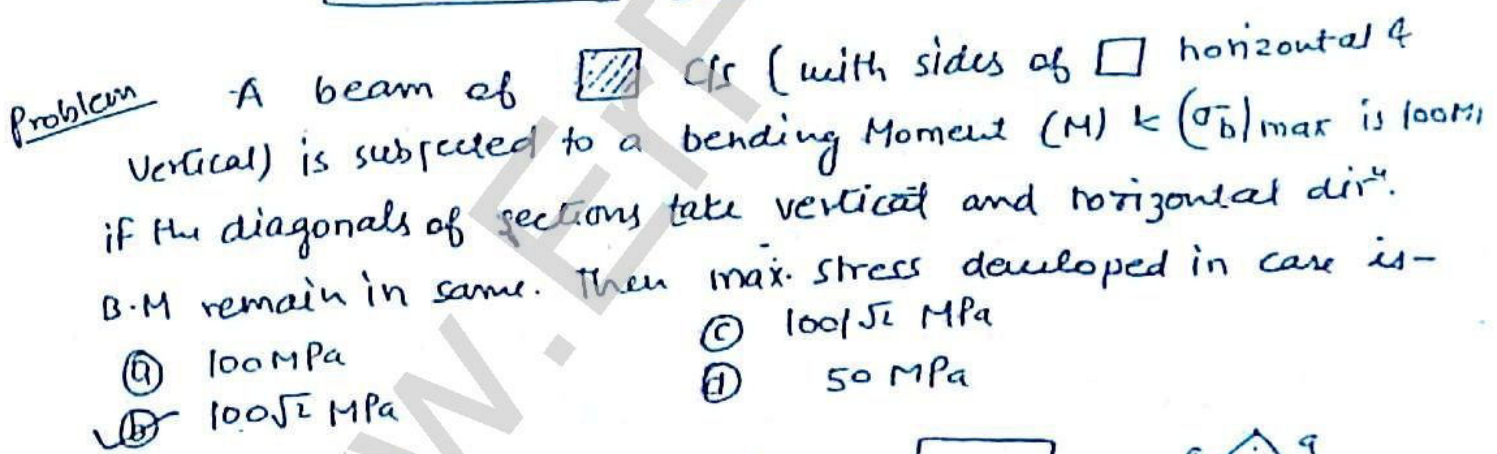 Problem A beam of c/s (with sides of horizontal &
vertical) is subjected to a bending Moment (M) & (σb)max is 100M
if the diagonals of sections take vertical and horizontal dirn.
B.M remain in same. Then max. stress developed in case is-
(a) 100MPa (c) 100/√2 MPa
(b) 100√2 MPa (d) 50 MPa
a a